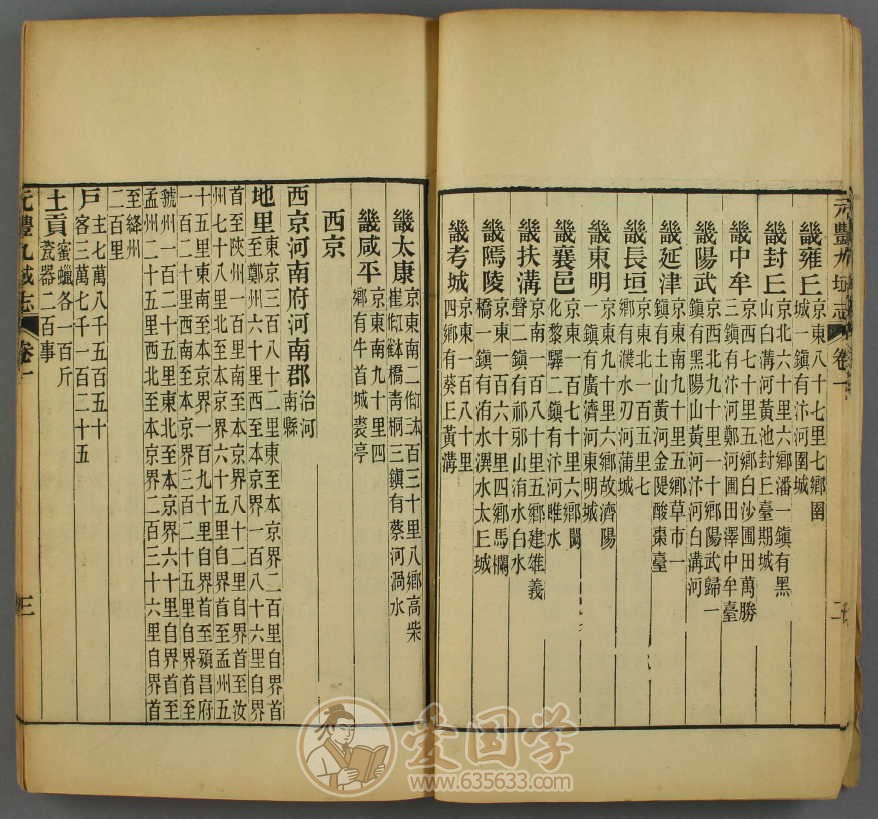 元豐九域志 卷一 二
畿雍丘 京東八十七里七鄉圉
城一鎮有汴河圉城
畿封丘 京北六十里六鄉潘一鎮有黑
山白溝河黃池封丘臺期城
畿中牟 京西七十里五鄉白沙圃田萬勝
三鎮有汴河鄭河圃田澤中牟臺
畿陽武 京西北九十里一十鄉陽武歸一
鎮有黑陽山黃河汴河白溝河
畿延津 京東南九十里五鄉草市一
鎮有土山黃河金隄酸棗臺
畿長垣 京東北一百五里七
鄉有濮水刃河蒲城
畿東明 京東九十里六鄉故濟陽
一鎮有廣濟河東明城
畿襄邑 京東一百七十里六鄉
化黎驛二鎮有汴河睢水
畿扶溝 京南一百八十里五鄉建雄義
聲二鎮有祁邪山洧水白水
畿焉陵 京東一百六十里四鄉馬欄
橋一鎮有洧水潩水太丘城
畿考城 京東一百八十里
四鄉有葵丘黃溝
畿太康 京東南二百三十里八鄉高柴
崔橋青桐三鎮有蔡河渦水
畿咸平 京東南九十里四
鄉有牛首城裘亭
西京
西京河南府河南郡 治河
南縣
地里 東京三百八十二里東至本京界二百里自界首
至鄭州六十里西至本京界一百八十六里自界
首至陝州一百里南至本京界八十二里自界首至汝
州七十八里北至本京界六十五里自界首至孟州五
十五里東南至本京界一百九十里自界首至潁昌府
一百二十里西南至本京界三百二十五里自界首至
虢州一百二十五里東北至本京界六十里自界首至
孟州二十五里西北至本京界二百三十六里自界首
至絳州
二百里
戶 主七萬八千五百五十
客三萬七千一百二十五
土貢 蜜蠟各一百斤
瓷器二百事
元豐九域志 卷一 三
爱国学
www.635633.com